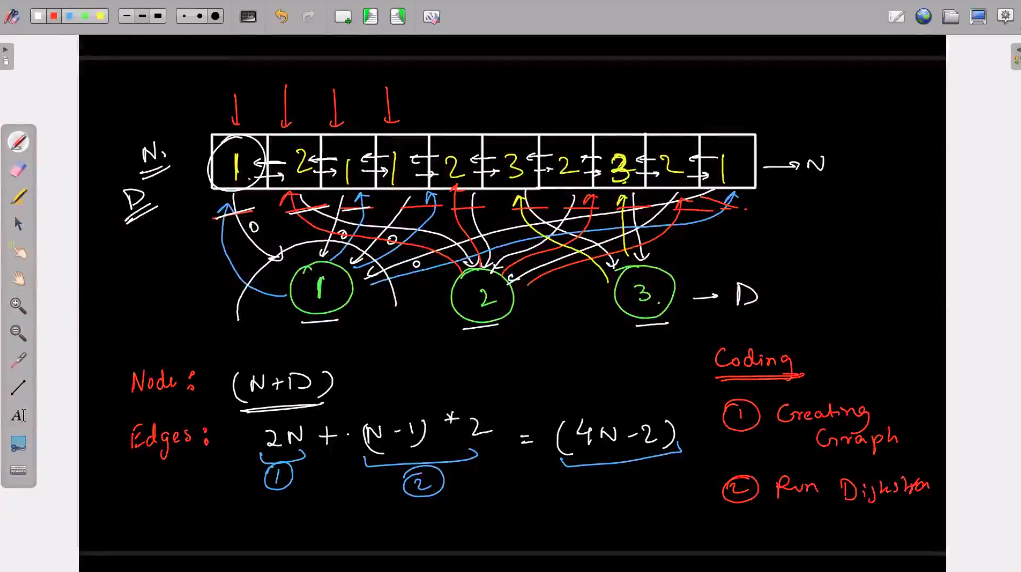 N,
1 2 1 1 2 3 2 2 2 1
→ N
D
0 0 0 0
1 2 3.
→ D
Node: (N+D)
Edges: 2N + (N-1) * 2 = (4N-2)
1 2
Coding
1 Creating Graph
2 Run Dijkstra